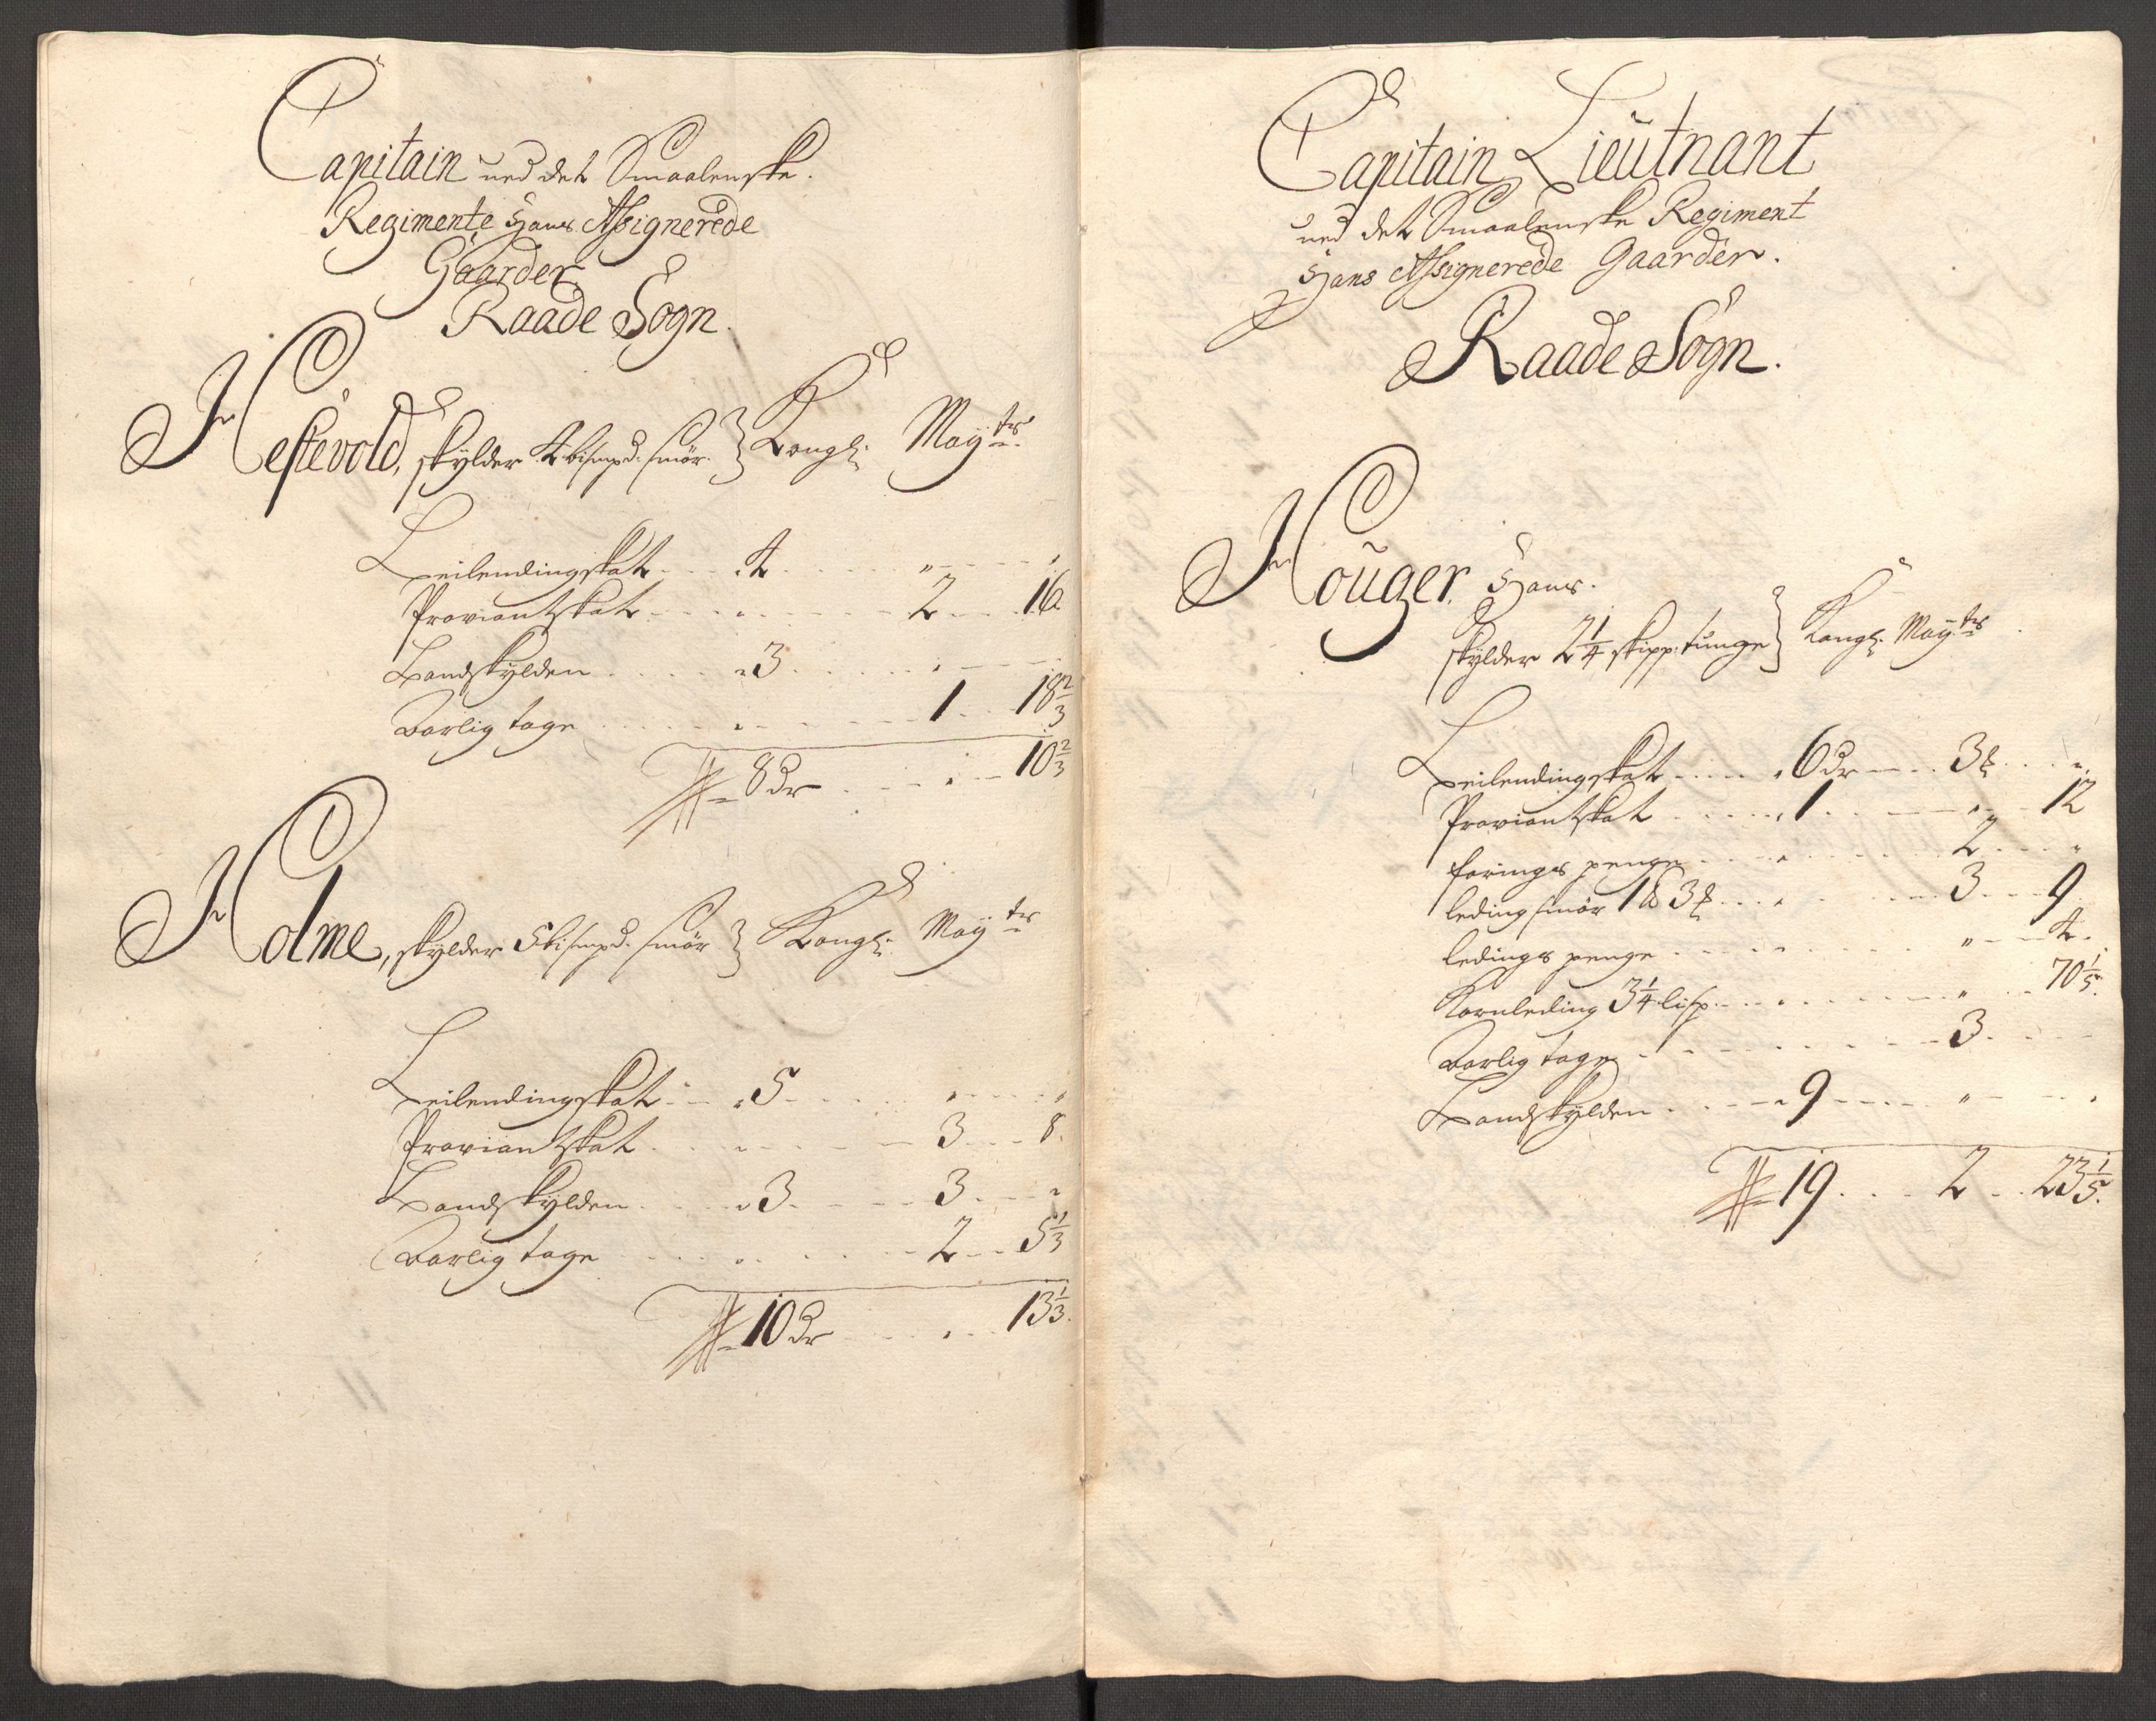 Capitain ved det Smaalenske.
Regimente Hans Assignerede
Gaarder
Raade Sogn.
Hestevold, skylder 4 bismpd. smör. } Kongl. Mayts
Leilendingskat 4 " "
Proviantskat " 2 16
Landskylden 3 " "
Aarligtage " 1 18 2/3
8 dr " 10 2/3
Holme, skylder 5 bismpd. smör } Kongl. Mayts
Leilendingskat 5 " "
Proviantskat " 3 8
Landskylden 3 3 "
Aarligtage " 2 5 1/3
10 dr " 13 1/3
Capitain Lieutnant
ved det Smaalenske Regiment
Hans Assignerede Gaarder.
Raade Sogn.
Houger. Hans.
skylder 2 1/4 skipp: tunge } Kongl. Mayts
Leilendingskat 6 dr 3 "
Proviantskat 1 " 12
forings penge " 2 "
leding smör 1 3 " 3 9
ledings penge " " 4
Kornleding 3 1/4 lisp. " " 70 1/5
Aarligtage 3
Landskylden 9 " "
19 2 23 1/5